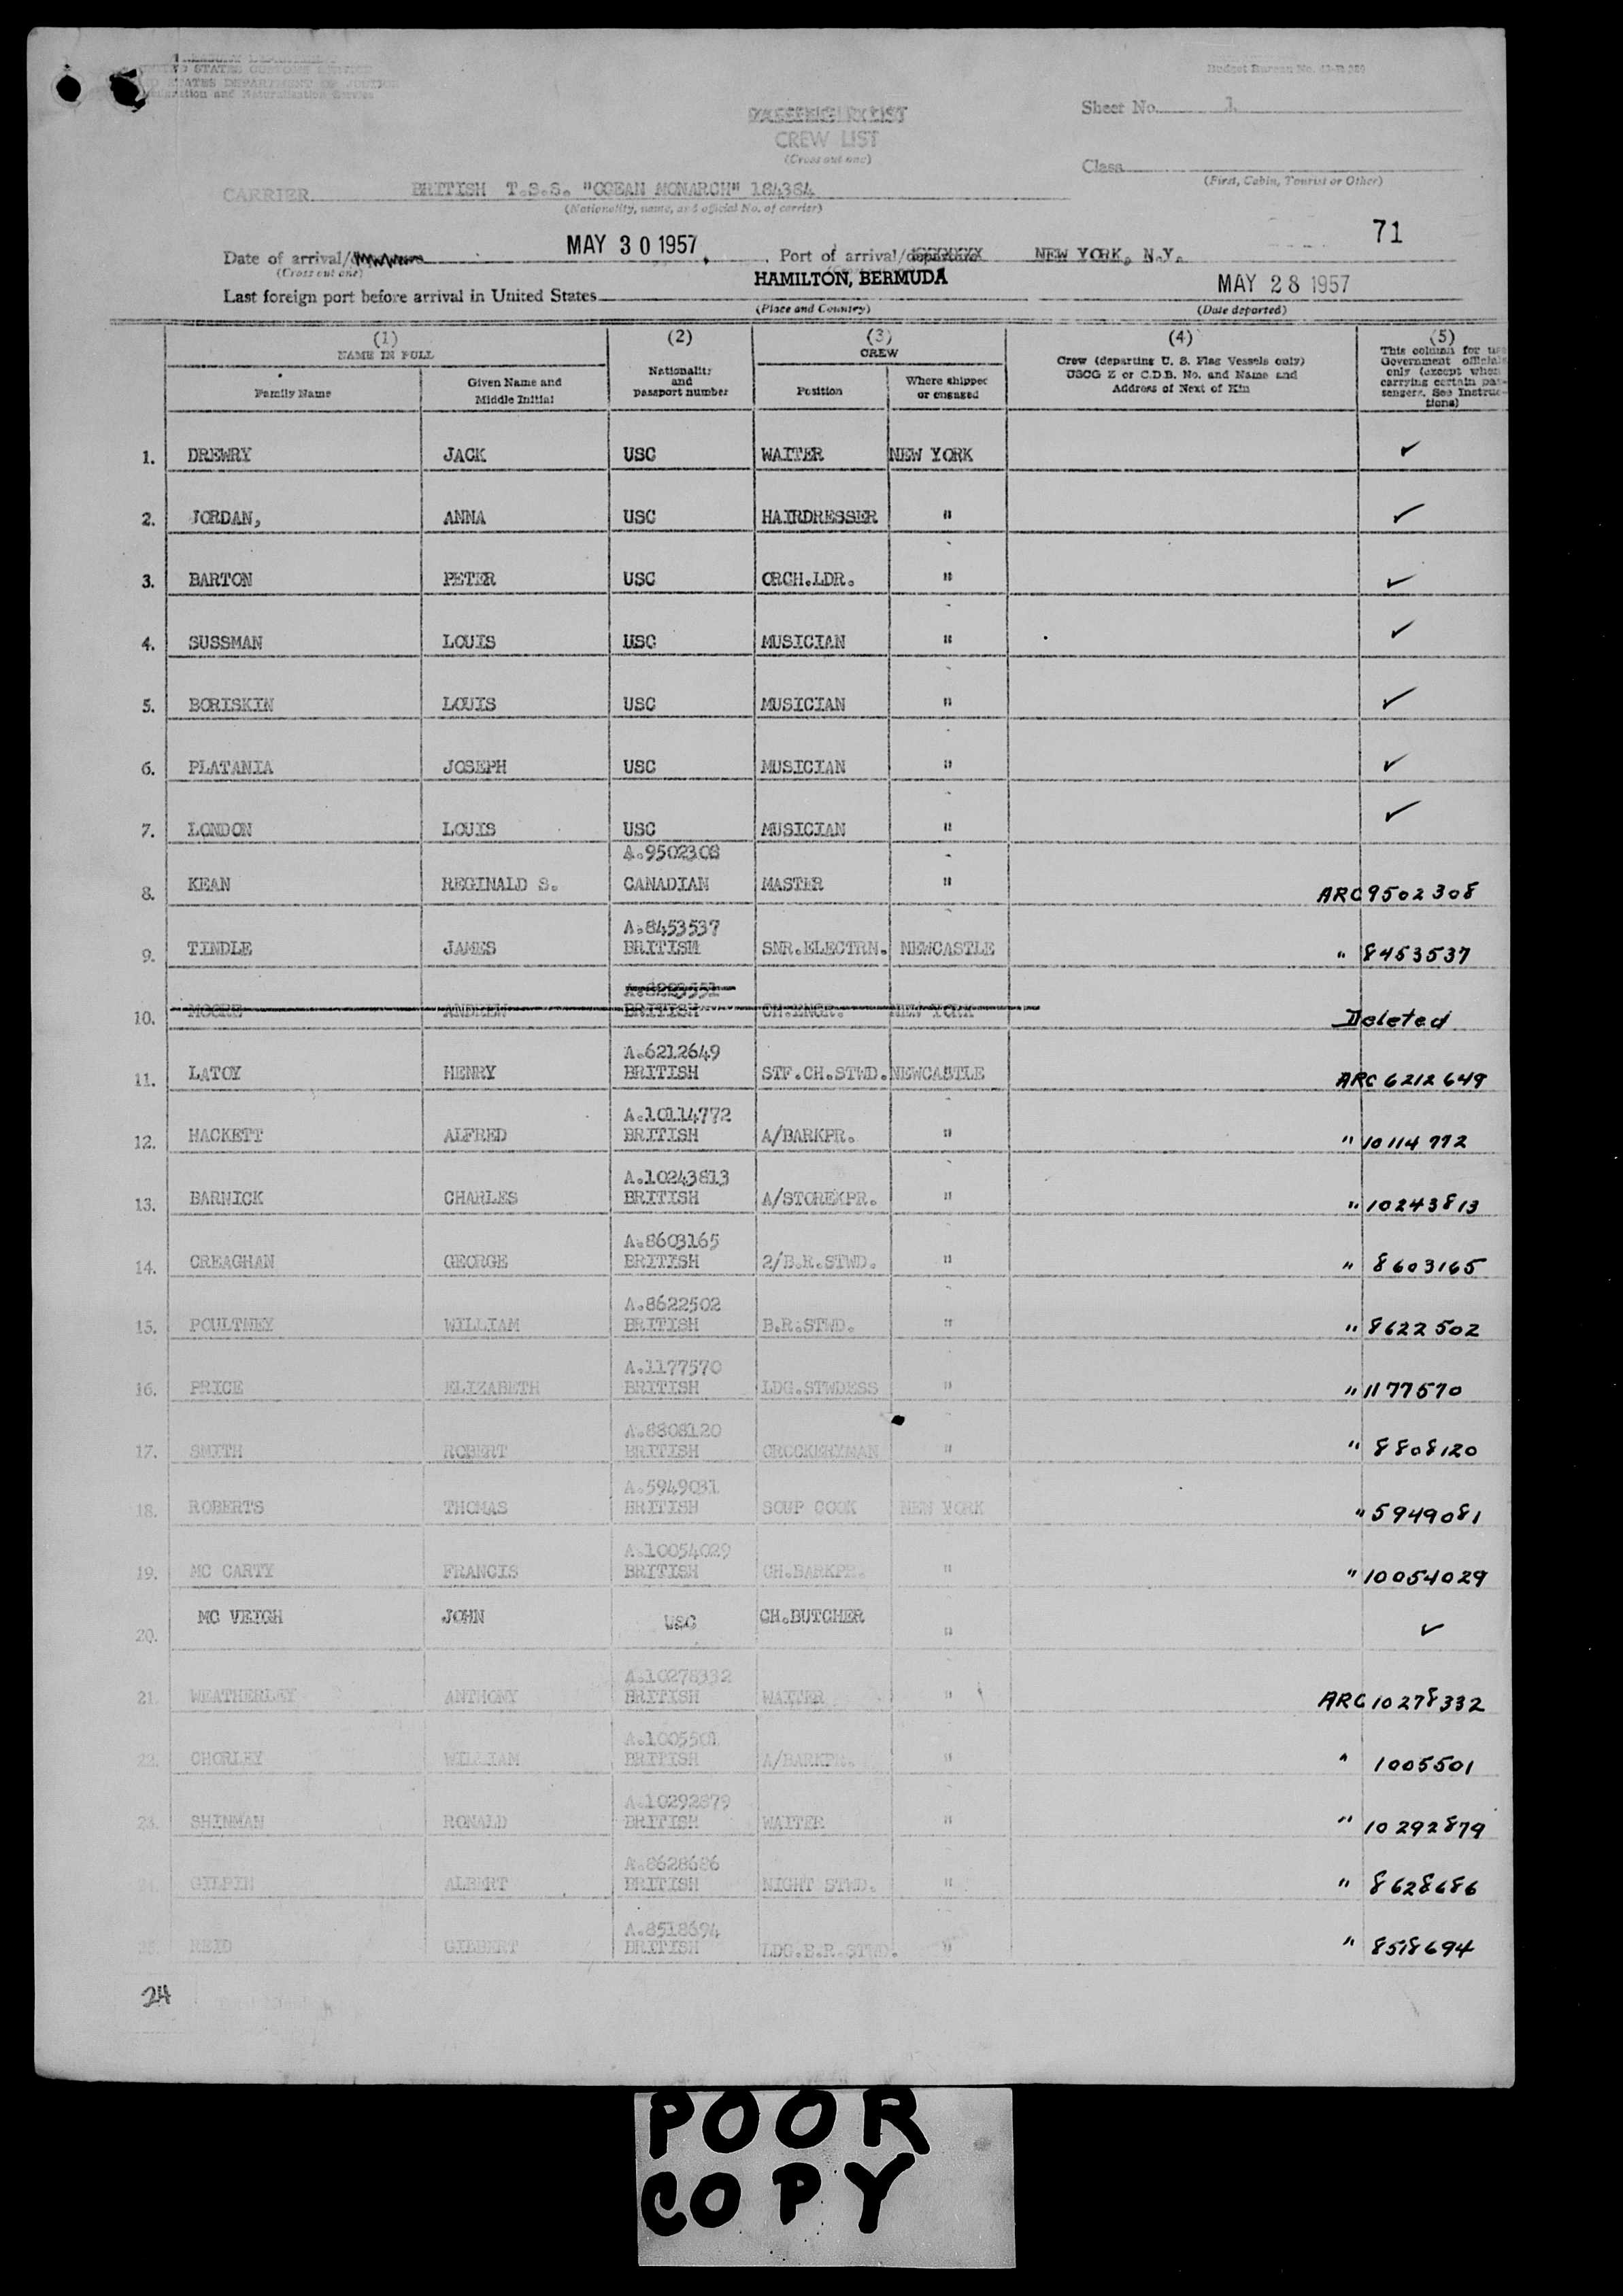 UNITED STATES CUSTOMS SERVICE
UNITED STATES DEPARTMENT OF JUSTICE
Immigration and Naturalization Service
Budget Bureau No.
PASSENGER LIST
CREW LIST
(Cross out one)
Sheet No. 1
Class
(First, Cabin, Tourist or Other)
CARRIER BRITISH T.S.S. "OCEAN MONARCH" 184384
(Nationality, name, and official No. of carrier)
71
Date of arrival/ MAY 30 1957. Port of arrival/departure NEW YORK, N.Y.
(Cross out one)
Last foreign port before arrival in United States HAMILTON, BERMUDA MAY 28 1957
(Place and Country) (Date departed)
(1) NAME IN FULL (2) (3) CREW (4) (5)
Family Name Given Name and Middle Initial Nationality and passport number Position Where shipped or engaged Crew (departing U. S. Flag Vessels only) USCG Z or C.D.B. No. and Name and Address of Next of Kin This column for use Government officials only (except when carrying certain passengers. See Instructions)
1. DREWRY JACK USC WAITER NEW YORK ✓
2. JORDAN, ANNA USC HAIRDRESSER " ✓
3. BARTON PETER USC ORCH.LDR. " ✓
4. SUSSMAN LOUIS USC MUSICIAN " ✓
5. BORISKIN LOUIS USC MUSICIAN " ✓
6. PLATANIA JOSEPH USC MUSICIAN " ✓
7. LONDON LOUIS USC MUSICIAN " ✓
A.9502308
8. KEAN REGINALD S. CANADIAN MASTER " ARC 9502308
A.8453537
9. TINDLE JAMES BRITISH SNR.ELECTRN. NEWCASTLE " 8453537
10. MOORE ANDREW BRITISH CH.ENGR. NEW YORK Deleted
A.6212649
11. LATOY HENRY BRITISH STF.CH.STWD. NEWCASTLE ARC 6212649
A.10114772
12. HACKETT ALFRED BRITISH A/BARKPR. " " 10114772
A.10243813
13. BARNICK CHARLES BRITISH A/STOREKPR. " " 10243813
A.8603165
14. CREAGHAN GEORGE BRITISH 2/B.R.STWD. " " 8603165
A.8622502
15. POULTNEY WILLIAM BRITISH B.R.STWD. " " 8622502
A.1177570
16. PRICE ELIZABETH BRITISH LDG.STWDESS " " 1177570
A.8808120
17. SMITH ROBERT BRITISH CROCKERYMAN " " 8808120
A.5949081
18. ROBERTS THOMAS BRITISH SOUP COOK NEW YORK " 5949081
A.10054029
19. MC CARTY FRANCIS BRITISH CH.BARKPR. " " 10054029
20. MC VEIGH JOHN USC CH.BUTCHER " ✓
A.10278332
21. WEATHERLEY ANTHONY BRITISH WAITER " ARC 10278332
A.1005501
22. CHORLEY WILLIAM BRITISH A/BARKPR. " " 1005501
A.10292879
23. SHINMAN RONALD BRITISH WAITER " " 10292879
A.8628686
24. GILPIN ALBERT BRITISH NIGHT STWD. " " 8628686
A.8518694
25. REID GILBERT BRITISH LDG.B.R.STWD. " " 8518694
24
POOR
COPY